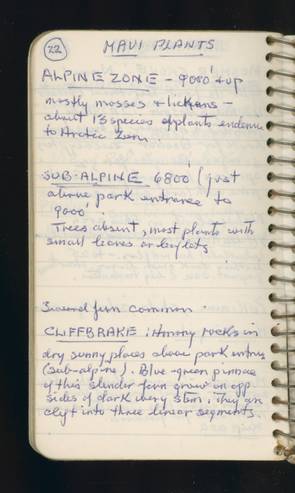 22
MAUI PLANTS
ALPINE ZONE - 9000' + up
mostly mosses + lichens -
about 13 species of plants endemic
to Arctic Zone.
SUB-ALPINE 6800' (just
above park entrance to
9000'
Trees absent, most plants with
small leaves or leaflets
Several fern common
CLIFFBRAKE: Among rocks in
dry sunny places above park entrance
(sub-alpine). Blue-green pinnae
of this slender fern grow on opp.
sides of dark wiry stem; they are
cleft into three linear segments.